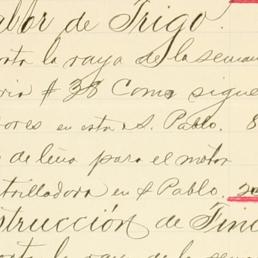 Labor de Trigo.
la raya de la seman
# 38 Como sigue
ores en esta á S. Pablo. 8
de leña para el motor
trilladora en S. Pablo. 2
strucción de Finc
la raya de la sema